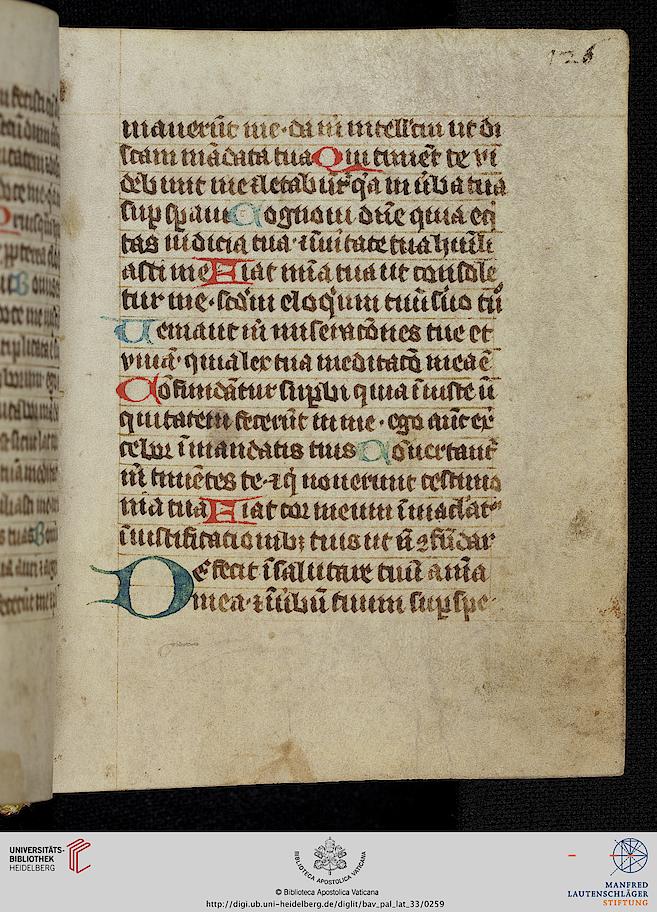 126
mauerūt me· da m̄ intell'cm ut di
scam mādata tua Qui timēt te vi
debunt me ⁊ letabūt᷑ q̄a in ūba tua
sup spaui Cognoui dn̄e quia eq̄
tas iudicia tua· ⁊ ī ūitate tua humili
asti me Fiat mīa tua ut console
tur me· scd̄m eloquium tuū s̄uo tuo
Ueniant m̄ miseratōnes tue et
viuā· quia lex tua meditatō mea ē
Cōfundātur sup̄bi quia īiuste ī
iquitatem fecerūt in me· ego aūt ex̄
cebor ī mandatis tuis Cōuertant᷑
m̄ timētes te· ⁊ q̄ nouerunt testimo
nia tua Fiat cor meum īmaclat᷑
ī iustificationibꝫ tuis ut n̄ ꝯfūdar
Defecit ī salutare tuū anīa
mea· ⁊ ī ūbū tuum sup spe
UNIVERSITÄTS-
BIBLIOTHEK
HEIDELBERG
BIBLIOTECA APOSTOLICA VATICANA
© Biblioteca Apostolica Vaticana
http://digi.ub.uni-heidelberg.de/diglit/bav_pal_lat_33/0259
MANFRED
LAUTENSCHLÄGER
STIFTUNG